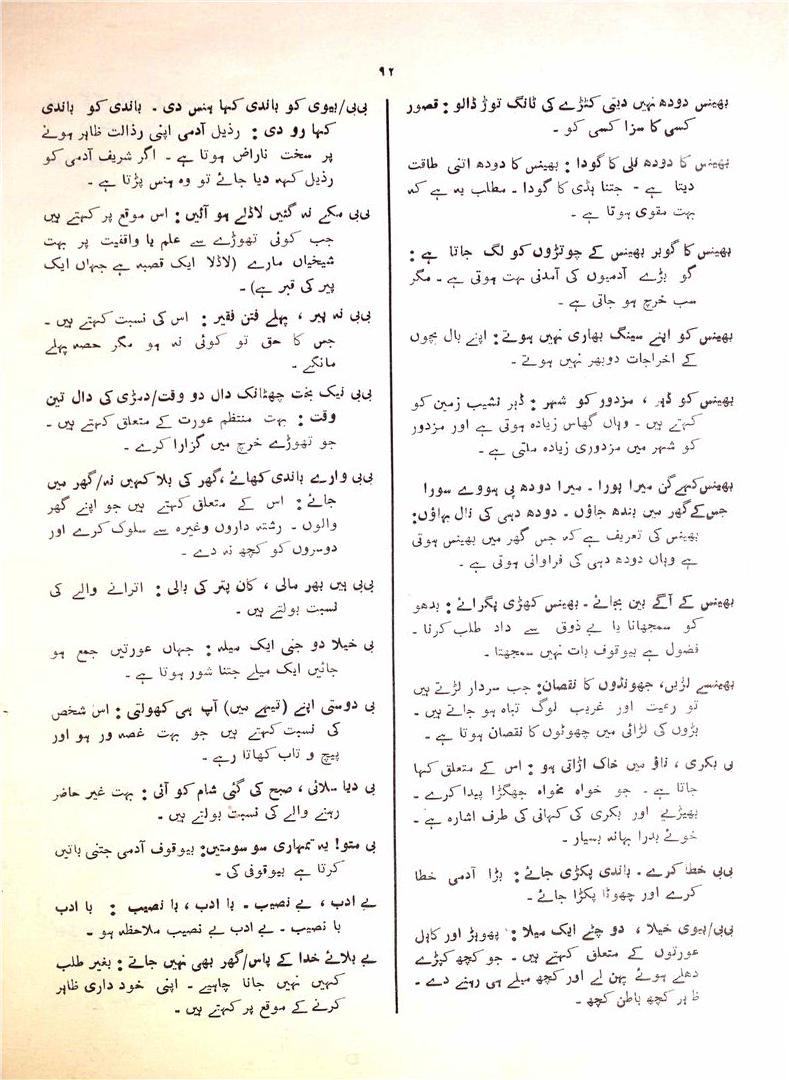 ۹۲
بھینس دودھ نہیں دیتی کٹڑے کی ٹانگ توڑ ڈالو : قصور
کسی کا سزا کسی کو ۔
بھینس کا دودھ نلی کا گودا : بھینس کا دودھ اتنی طاقت
دیتا ہے ۔ جتنا ہڈی کا گودا ۔ مطلب یہ ہے کہ
بہت مقوی ہوتا ہے ۔
بھینس کا گوبر بھینس کے چوتڑوں کو لگ جاتا ہے :
گو بڑے آدمیوں کی آمدنی بہت ہوتی ہے ۔ مگر
سب خرچ ہو جاتی ہے ۔
بھینس کو اپنے سینگ بھاری نہیں ہوتے : اپنے بال بچوں
کے اخراجات دوبھر نہیں ہوتے ۔
بھینس کو ڈہر ، مزدور کو شہر : ڈہر نشیب زمین کو
کہتے ہیں ۔ وہاں گھاس زیادہ ہوتی ہے اور مزدور
کو شہر میں مزدوری زیادہ ملتی ہے ۔
بھینس کہے گن میرا پورا ۔ میرا دودھ پی ہووے سورا
جس کے گھر میں بندھ جاؤں ۔ دودھ دہی کی نال بہاؤں :
بھینس کی تعریف ہے کہ جس گھر میں بھینس ہوتی
ہے وہاں دودھ دہی کی فراوانی ہوتی ہے ۔
بھینس کے آگے بین بجائے ۔ بھینس کھڑی پگرائے : بدھو
کو سمجھانا یا بے ذوق سے داد طلب کرنا ۔
فضول ہے بیوقوف بات نہیں سمجھتا ۔
بھینسے لڑیں ، جھونڈوں کا نقصان : جب سردار لڑتے ہیں
تو رعیت اور غریب لوگ تباہ ہو جاتے ہیں ۔
بڑوں کی لڑائی میں چھوٹوں کا نقصان ہوتا ہے ۔
بی بکری ، ناؤ میں خاک اڑاتی ہو : اس کے متعلق کہا
جاتا ہے ۔ جو خواہ مخواہ جھگڑا پیدا کرے ۔
بھیڑیے اور بکری کی کہانی کی طرف اشارہ ہے ۔
خوئے بدرا بہانہ بسیار ۔
بی بی خطا کرے ۔ باندی پکڑی جائے : بڑا آدمی خطا
کرے اور چھوٹا پکڑا جائے ۔
بی بی/بیوی خیلا ، دو چٹے ایک میلا : پھوہڑ اور کاہل
عورتوں کے متعلق کہتے ہیں ۔ جو کچھ کپڑے
دھلے ہوئے پہن لے اور کچھ میلے ہی رہنے دے ۔
ظاہر کچھ باطن کچھ ۔
بی بی/بیوی کو باندی کہا ہنس دی ۔ باندی کو باندی
کہا رو دی : رذیل آدمی اپنی رذالت ظاہر ہونے
پر سخت ناراض ہوتا ہے ۔ اگر شریف آدمی کو
رذیل کہہ دیا جائے تو وہ ہنس پڑتا ہے ۔
بی بی مکے نہ گئیں لاڈلے ہو آئیں : اس موقع پر کہتے ہیں
جب کوئی تھوڑے سے علم یا واقفیت پر بہت
شیخیاں مارے (لاڈلا ایک قصبہ ہے جہاں ایک
پیر کی قبر ہے) ۔
بی بی نہ پیر ، پہلے فتن فقیر : اس کی نسبت کہتے ہیں ۔
جس کا حق تو کوئی نہ ہو مگر حصہ پہلے
مانگے ۔
بی بی نیک بخت چھٹانک دال دو وقت/دمڑی کی دال تین
وقت : بہت منتظم عورت کے متعلق کہتے ہیں ۔
جو تھوڑے خرچ میں گزارا کرے ۔
بی بی وارے باندی کھائے ، گھر کی بلا کہیں نہ/گھر میں
جائے : اس کے متعلق کہتے ہیں جو اپنے گھر
والوں ۔ رشتہ داروں وغیرہ سے سلوک کرے اور
دوسروں کو کچھ نہ دے ۔
بی بی ہیں بھر مالی ، کان پتر کی بالی : اترانے والے کی
نسبت بولتے ہیں ۔
بی خیلا دو جنی ایک میلہ : جہاں عورتیں جمع ہو
جائیں ایک میلے جتنا شور ہوتا ہے ۔
بی دوستی اپنے (تیہے میں) آپ ہی کھولتی : اس شخص
کی نسبت کہتے ہیں جو بہت غصہ ور ہو اور
پیچ و تاب کھاتا رہے ۔
بی دیا سلائی ، صبح کی گئی شام کو آئی : بہت غیر حاضر
رہنے والے کی نسبت بولتے ہیں ۔
بی متو! یہ تمہاری سو سومتیں : بیوقوف آدمی جتنی باتیں
کرتا ہے بیوقوفی کی ۔
بے ادب ، بے نصیب ۔ با ادب ، با نصیب : با ادب
با نصیب ۔ بے ادب بے نصیب ملاحظہ ہو ۔
بے بلائے خدا کے پاس/گھر بھی نہیں جاتے : بغیر طلب
کہیں نہیں جانا چاہیے ۔ اپنی خود داری ظاہر
کرنے کے موقع پر کہتے ہیں ۔